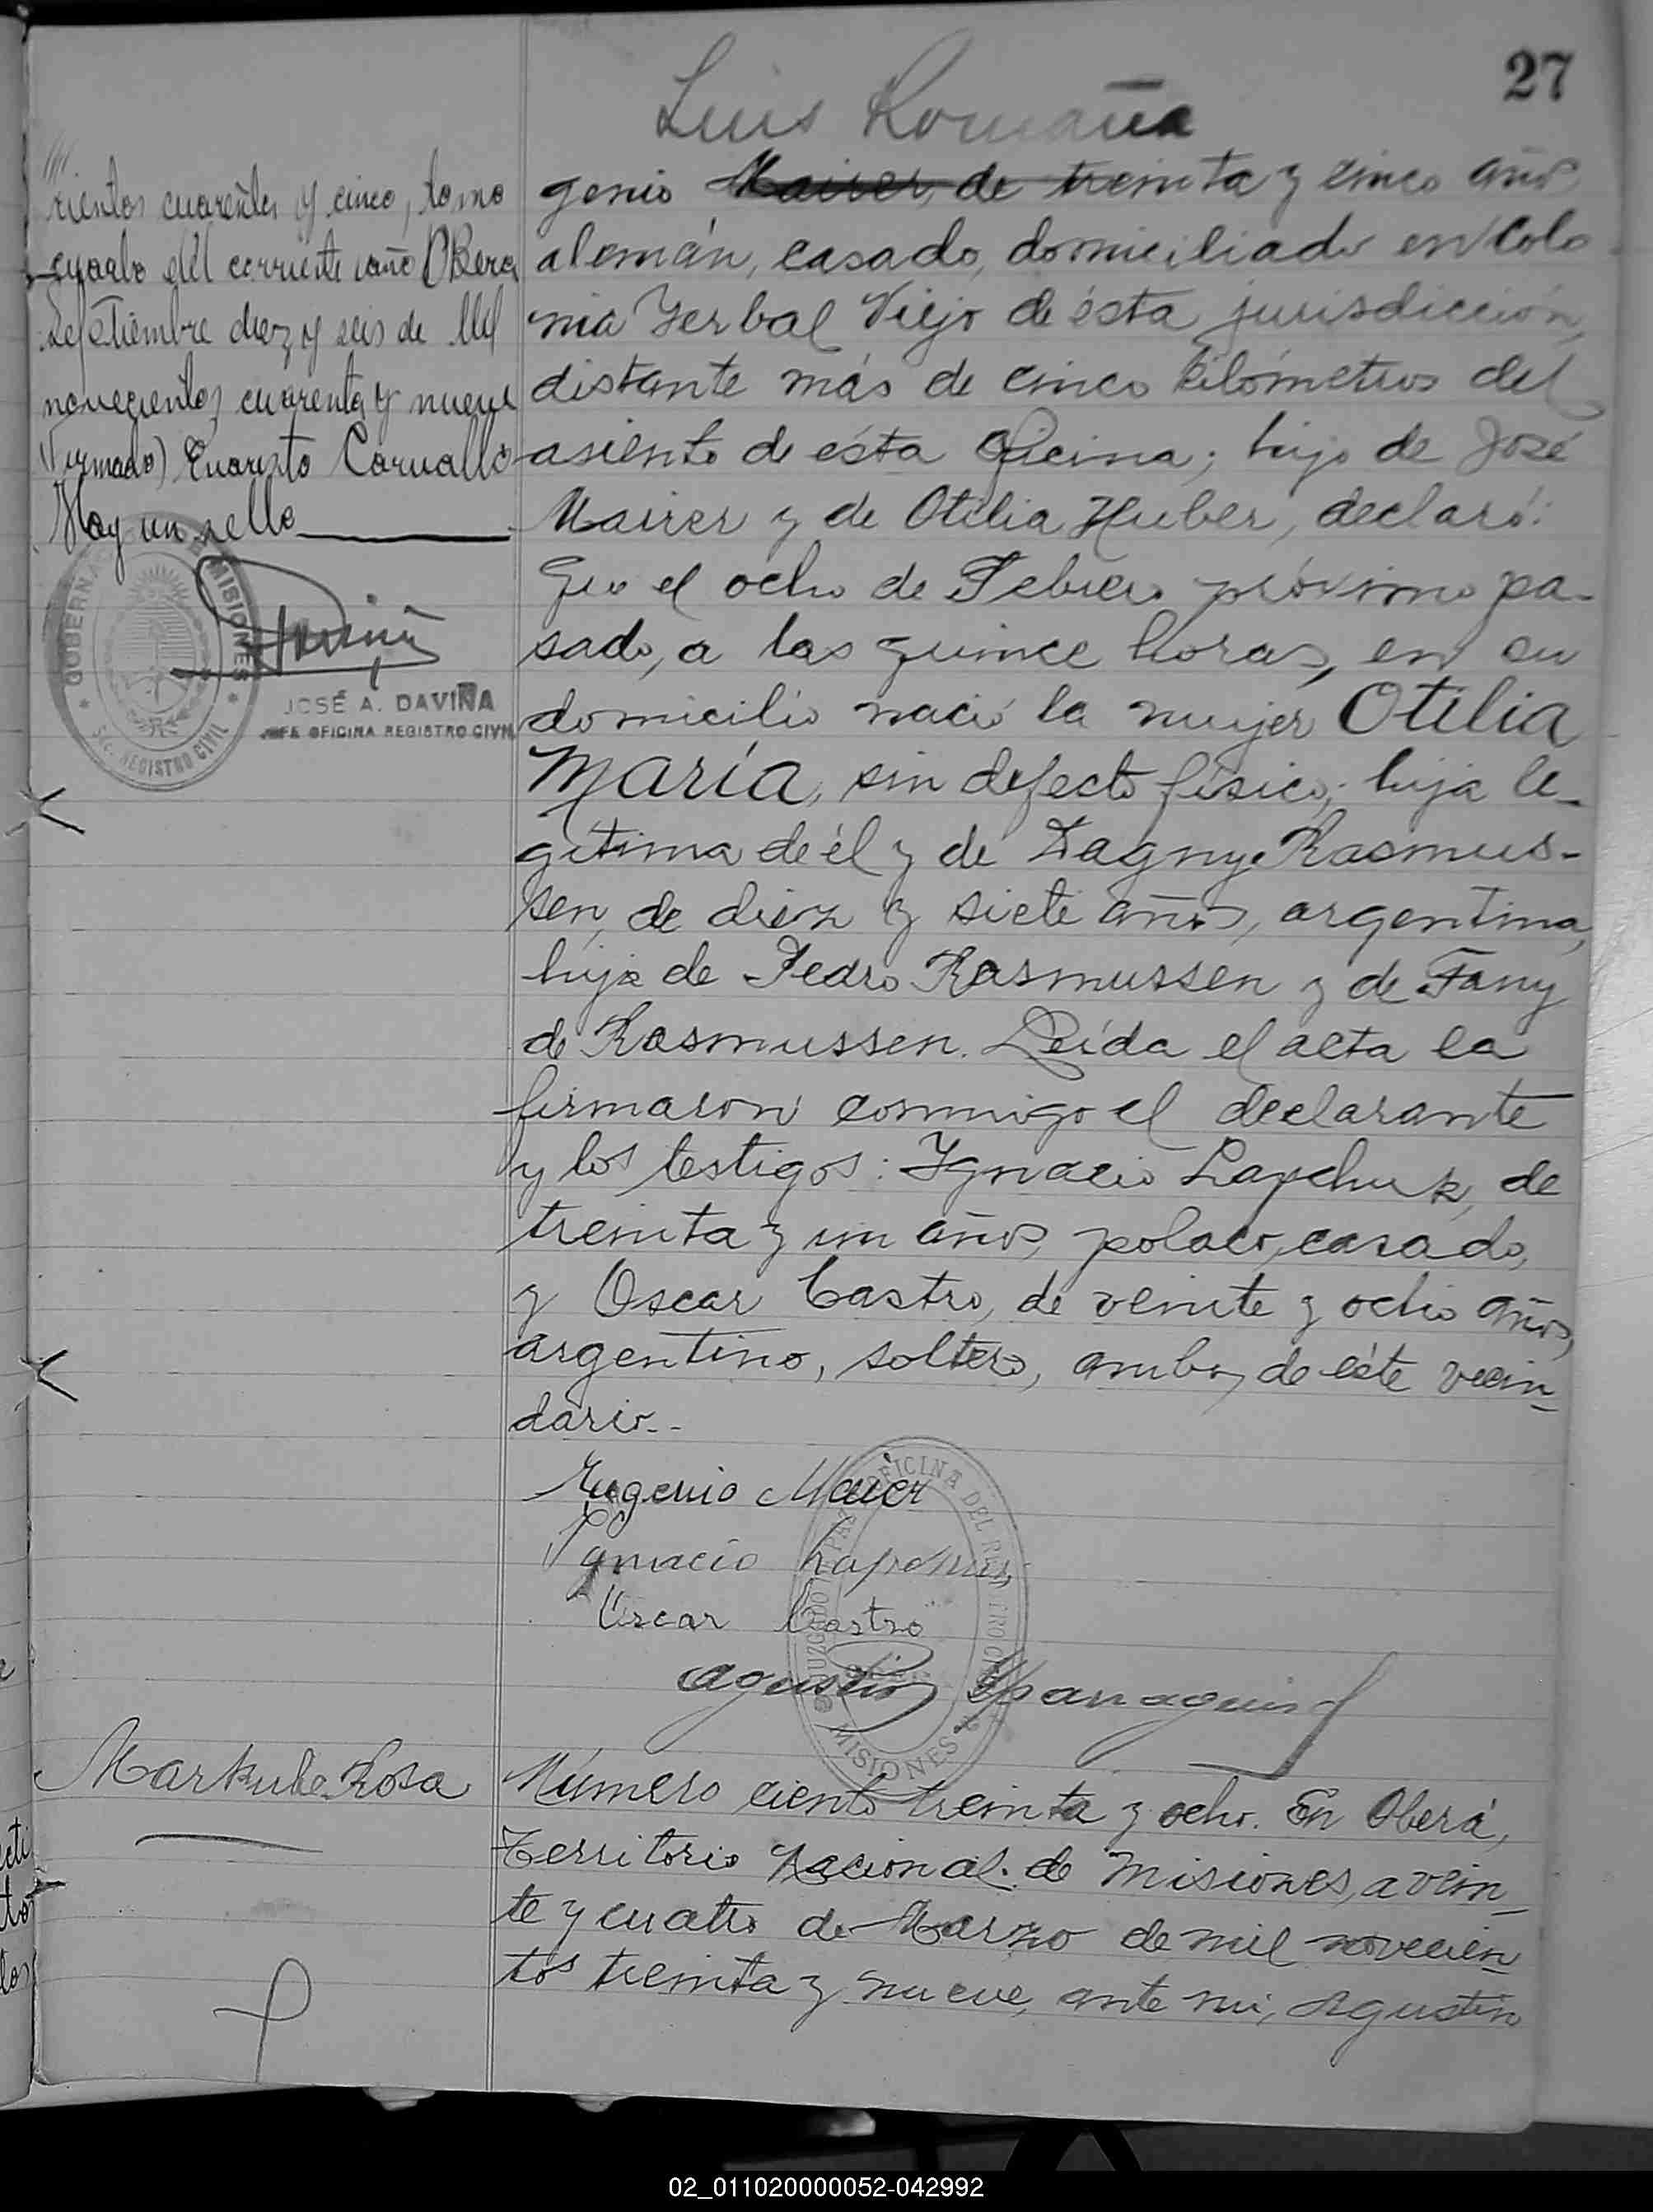 27
Luis Romaña
rientos cuarenta y cinco, tomo
cuarto del corriente año Oberá
Setiembre diez y seis de Mil
novecientos cuarenta y nueve
(Firmado) Evaristo Carvallo
Hay un sello
GOBERNA MISIONES
REGISTRO CIVIL
JOSÉ A. DAVIÑA
JEFE OFICINA REGISTRO CIVIL
genio Mairer, de treinta y cinco años
alemán, casado, domiciliado en Colo
nia Yerbal Viejo de ésta jurisdicción,
distante más de cinco kilómetros del
asiento de ésta Oficina; hijo de José
Mairer y de Otilia Huber, declaró:
Que el ocho de Febrero próximo pa-
sado, a las quince horas, en su
domicilio nació la mujer Otilia
María, sin defecto físico; hija le-
gítima de él y de Dagny Rasmus-
sen, de diez y siete años, argentina,
hija de Pedro Rasmussen y de Fany
de Rasmussen. Leída el acta la
firmaron conmigo el declarante
y los testigos: Ygnacio Lapchuk, de
treinta y un años, polaco, casado,
y Oscar Castro, de veinte y ocho años,
argentino, soltero, ambos de éste vecin-
dario.-
Eugenio Maier
Ygnacio
Oscar Castro
Agustin
JUZGADO DE PAZ OFICINA DEL REGISTRO CIVIL
MISIONES
Markube Rosa
Número ciento treinta y ocho. En Oberá,
Territorio Nacional de Misiones, a vein-
te y cuatro de Marzo de mil novecien-
tos treinta y nueve, ante mi, Agustin
02_011020000052-042992